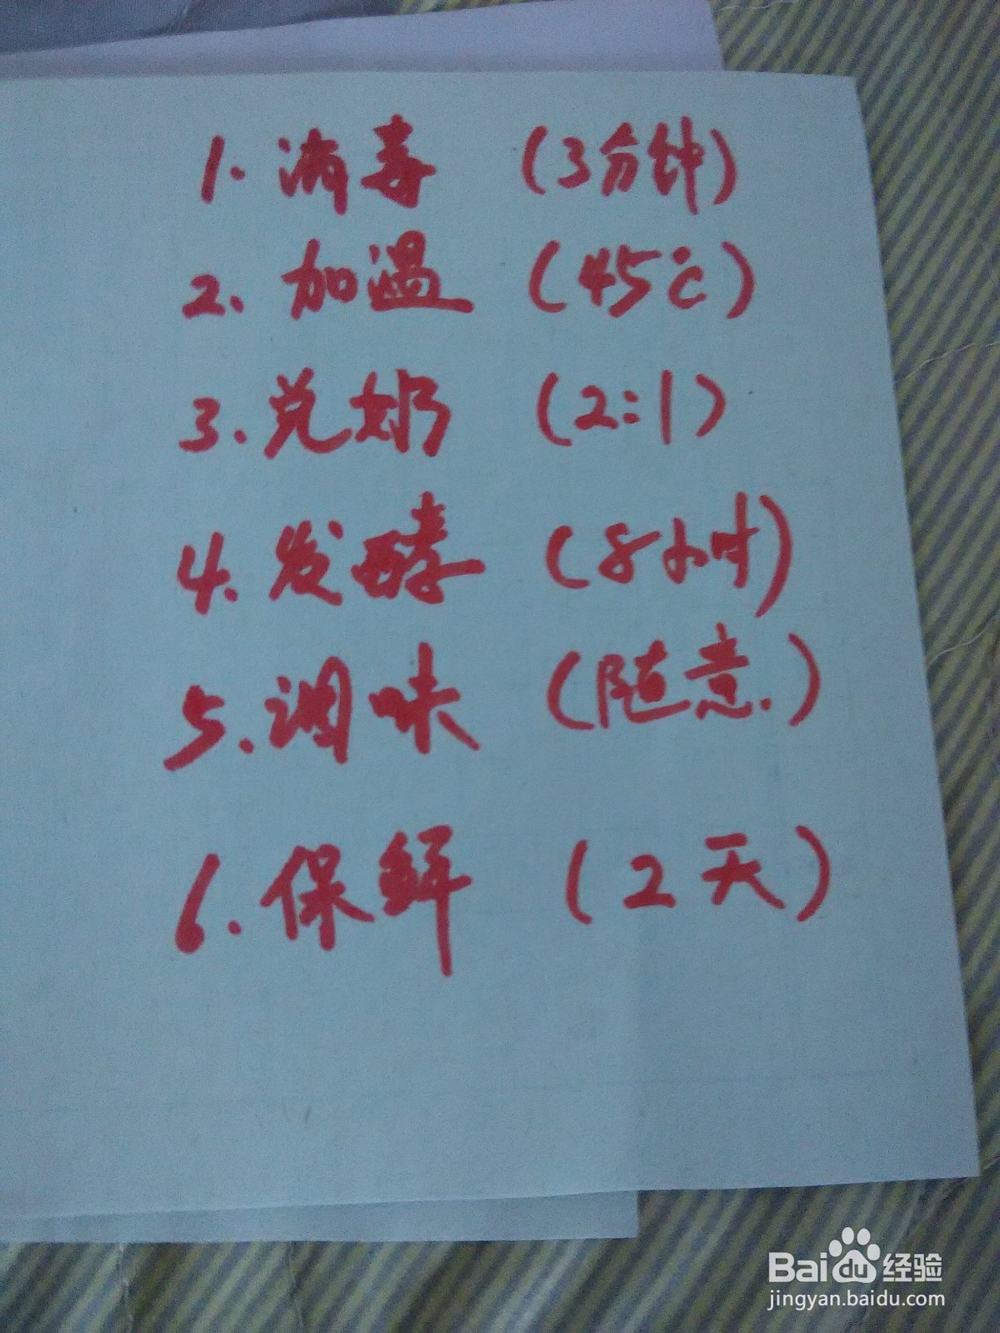 1. 消毒 (3分钟)
2. 加温 (45℃)
3. 兑奶 (2:1)
4. 发酵 (8小时)
5. 调味 (随意.)
6. 保鲜 (2天)
Baidu 经验
jingyan.baidu.com